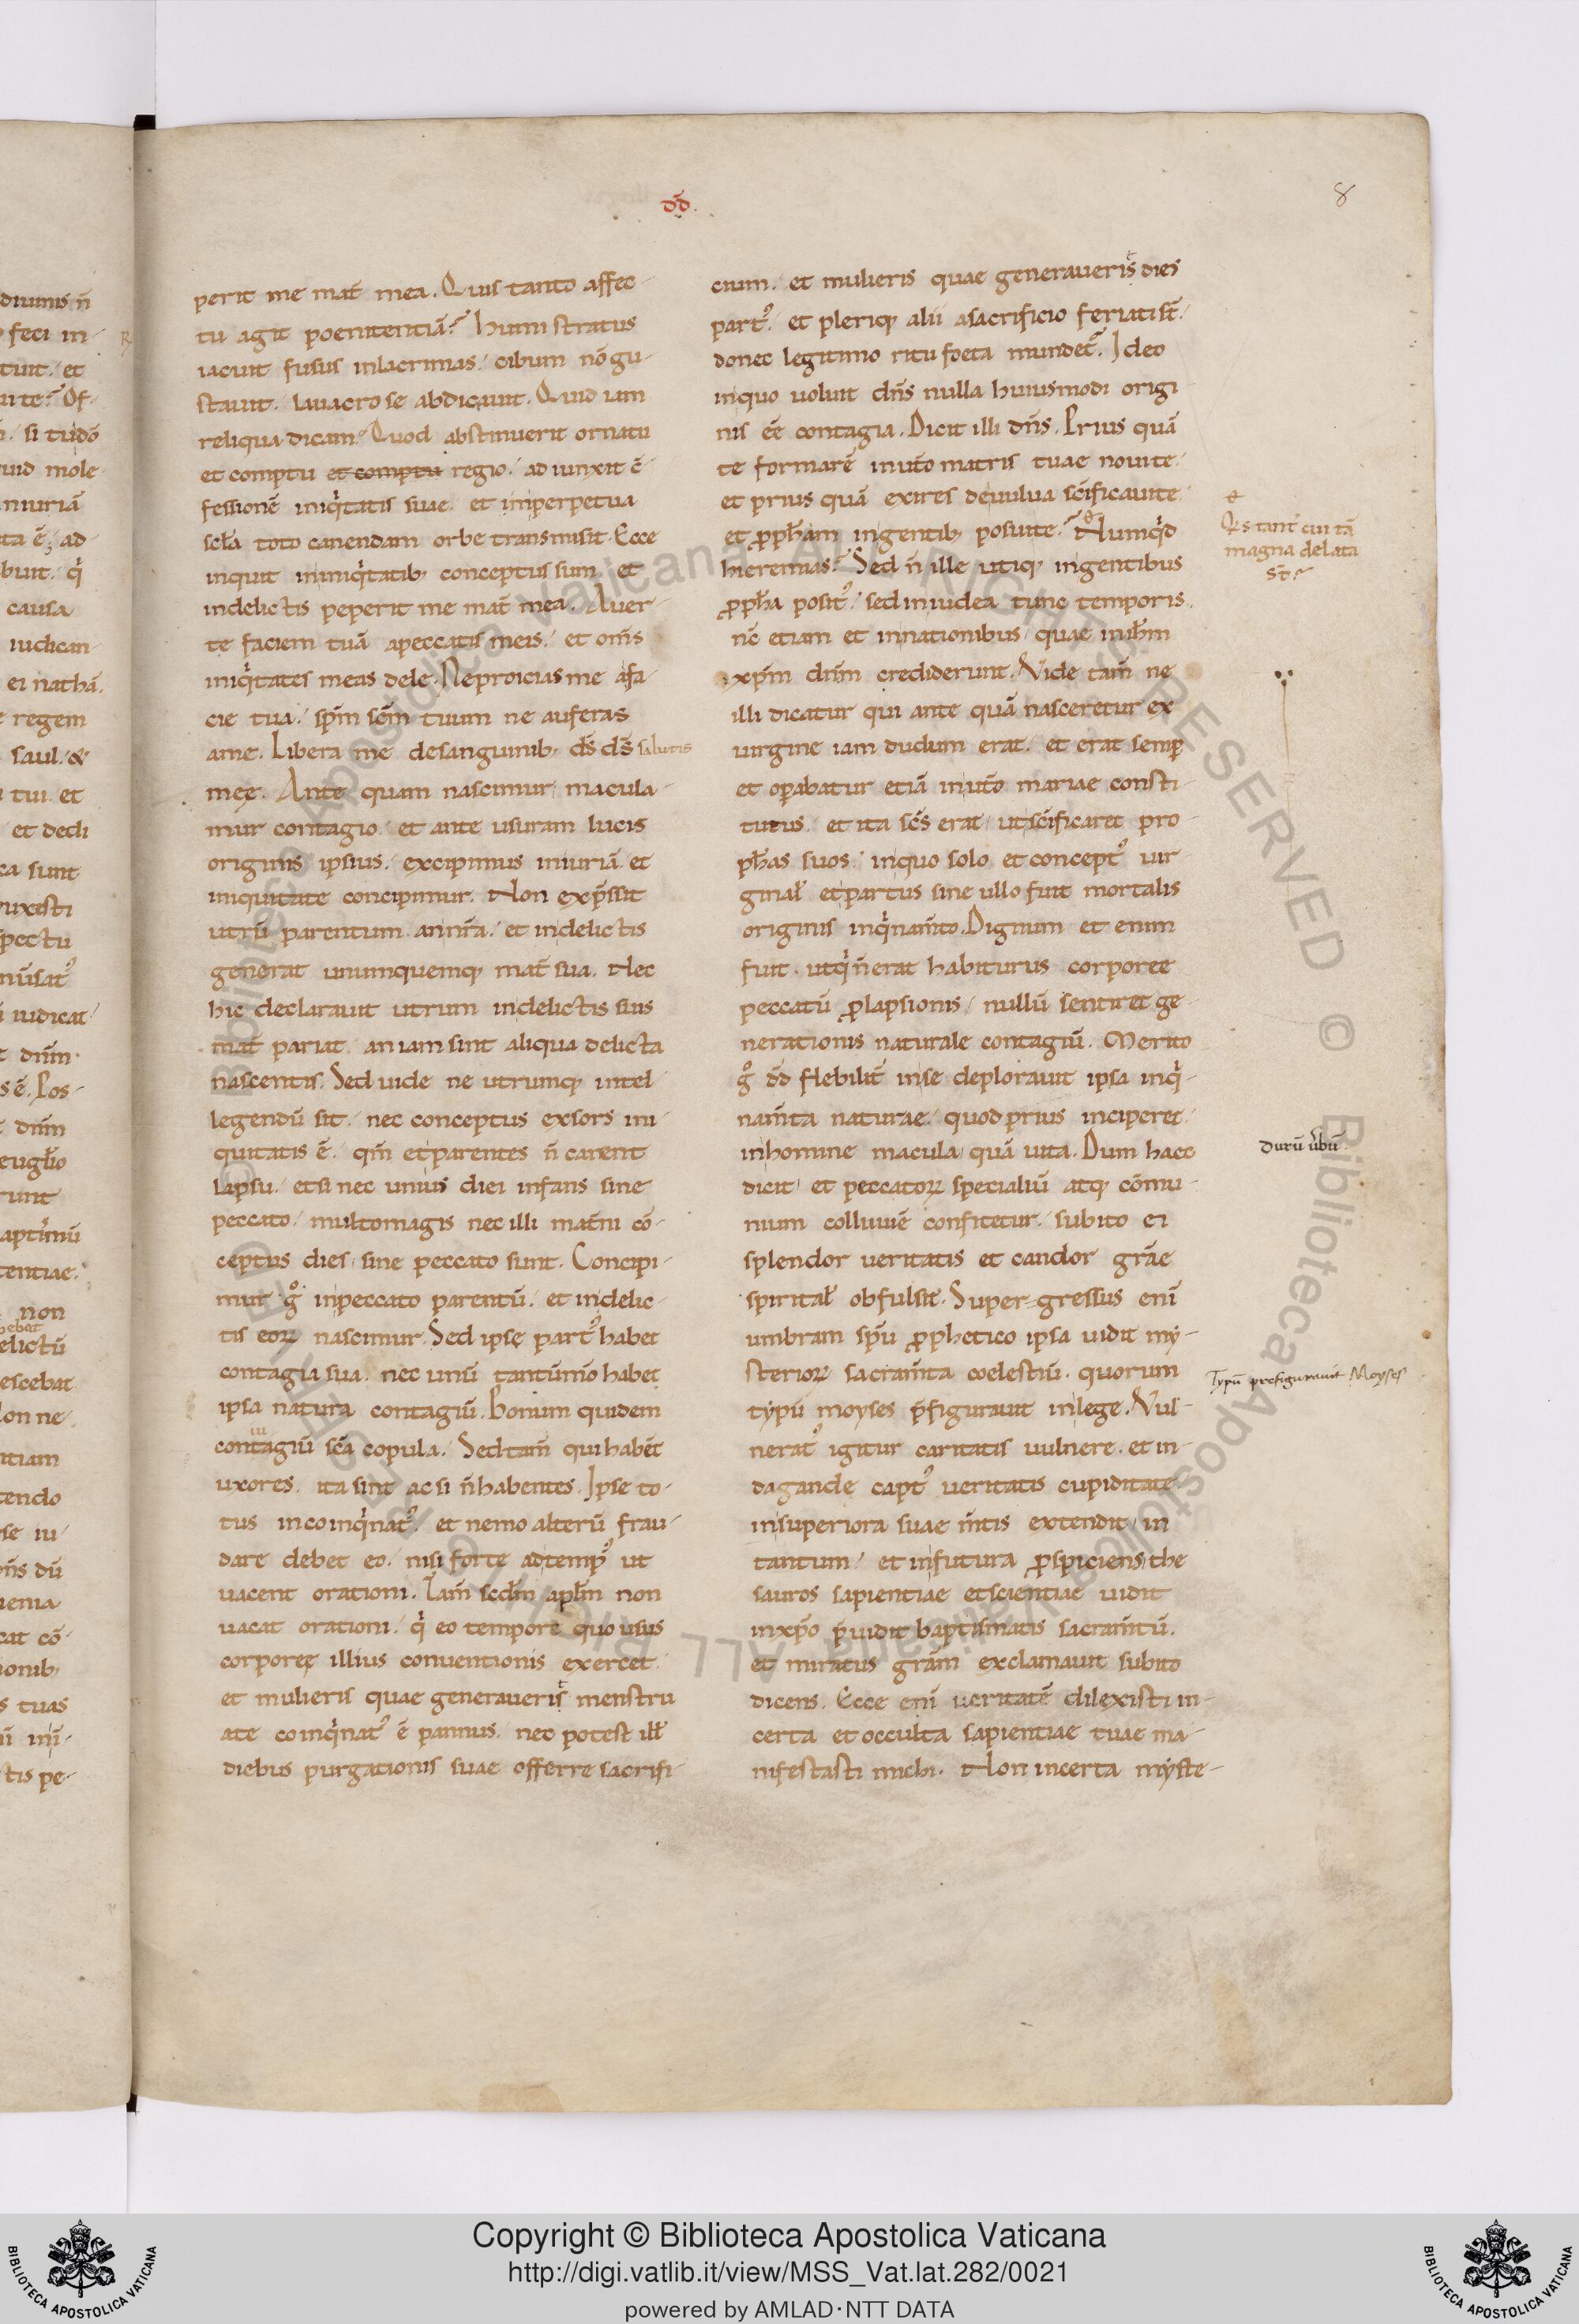 dd̄.
8
perit me mat̄ mea. Quis tanto affec-
tu agit poenitentiā? humi stratus
iacuit fusus inlacrimas. cibum nō gu-
stauit. lauacro se abdicauit. Quid iam
reliqua dicam? Quod abstinuerit ornatu
et comptu et comptu regio. ad iunxit c̄-
fessionē iniqͥtatis suae. et inperpetua
scl̄a toto canendam orbe transmisit. Ecce
inquit ininiqͥtatib; conceptus sum et
indelictis peperit me mat̄ mea. Auer-
te faciem tuā apeccatis meis. et om̄s
iniqͥtates meas dele. Neproicias me afa-
cie tua. sp̄m sc̄m tuum ne auferas
ame. Libera me desanguinib; ds̄ ds̄ salutis
meę. Ante quam nascimur macula-
mur contagio. et ante usuram lucis
originis ipsius. excipimus iniuriā et
iniquitate concipimur. Non exp̄ssit
utrū parentum. ann̄ra. et indelictis
generat unumquemq; mat̄ sua. Nec
hic declarauit utrum indelictis suis
mat̄ pariat. an iam sint aliqua delicta
nascentis. Sed uide ne utrumq; intel-
legendū sit. nec conceptus exsors ini-
quitatis ē. qm̄ et parentes n̄ carent
lapsu. etsi nec unius diei infans sine
peccato. multomagis nec illi mat̄ni cō-
ceptus dies sine peccato sunt. Concipi-
mur gͦ inpeccato parentū. et indelic-
tis eoꝝ nascimur. Sed ipse partꝰ habet
contagia sua. nec unū tantūm̄o habet
ipsa natura contagiū. Bonum quidem
contagiū sc̄a copula. Sed tam̄ qui habēt
uxores. ita sint ac si n̄ habentes. Ipse to-
tus incoinqͥnatꝰ. et nemo alterū frau-
dare debet eo. nisi forte adtempꝰ ut
uacent orationi. Tam̄ scd̄m apl̄m non
uacat orationi. qͥ eo tempore quo usus
corporeę illius conuentionis exercet.
et mulieris quae generauerit menstru
ate coinqͥnatꝰ ē pannus. nec potest ill̄
diebus purgationis suae offerre sacrifi-
cium. et mulieris quae generauerit dies
partꝰ. et pleriq; alii asacrificio feriati st̄.
donec legitimo ritu foeta mundet̄. Ideo
inquo uoluit dn̄s nulla huiusmodi origi
nis ēē contagia. Dicit illi dn̄s. Prius quā
te formarē inut̄o matris tuae noui te.
et prius quā exires deuulua sc̄ificaui te.
et ꝓph̄am ingentib; posui te. Numqͥd
hieremias? Sed n̄ ille utiq; ingentibus
ꝓph̄a positꝰ. sed iniudea tunc temporis.
nc̄ etiam et innationibus quae inih̄m
xp̄m dn̄m crediderunt. Vide tam̄ ne
illi dicatur qui ante quā nasceretur ex
uirgine iam dudum erat. et erat semꝑ
et oꝑabatur etiā inut̄o mariae consti-
tutus. et ita sc̄s erat utsc̄ificaret pro-
ph̄as suos. inquo solo et conceptꝰ uir-
ginal̄ et partus sine ullo fuit mortalis
originis inqͥnam̄to. Dignum et enim
fuit. utqͥ n̄ erat habiturus corporee
peccatū ꝓlapsionis nullū sentiret ge-
nerationis naturale contagiū. Merito
gͦ dd̄ flebilit̄ inse deplorauit ipsa inqͥ-
nam̄ta naturae. quod prius inciperet
inhomine macula quā uita. Dum haec
dicit et peccatoꝝ specialiū atq; cōmu-
nium colluuiē confitetur. subito ei
splendor ueritatis et candor gr̄ae
spirital̄ obfulsit. Super-gressus enī
umbram sp̄u ꝓphetico ipsa uidit my-
sterioꝝ sacram̄ta coelestiū. quorum
typū moyses p̄figurauit inlege. Vul-
neratꝰ igitur caritatis uulnere. et in-
dagandę captꝰ ueritatis cupiditate.
insuperiora suae m̄tis extendit in
tantum. et infutura ꝓspiciens the
sauros sapientiae et scientiae uidit
inxp̄o p̄uidit baptismatis sacram̄tū.
et miratus gr̄am exclamauit subito
dicens. Ecce enī ueritatē dilexisti in-
certa et occulta sapientiae tuae ma-
nifestasti michi. Non incerta myste-
Qͥs tantꝰ cui tā
magna delata
st̄?
durū ūbū.
Typū prefigurauit Moyses
Copyright © Biblioteca Apostolica Vaticana
http://digi.vatlib.it/view/MSS_Vat.lat.282/0021
powered by AMLAD·NTT DATA
BIBLIOTECA APOSTOLICA VATICANA
BIBLIOTECA APOSTOLICA VATICANA